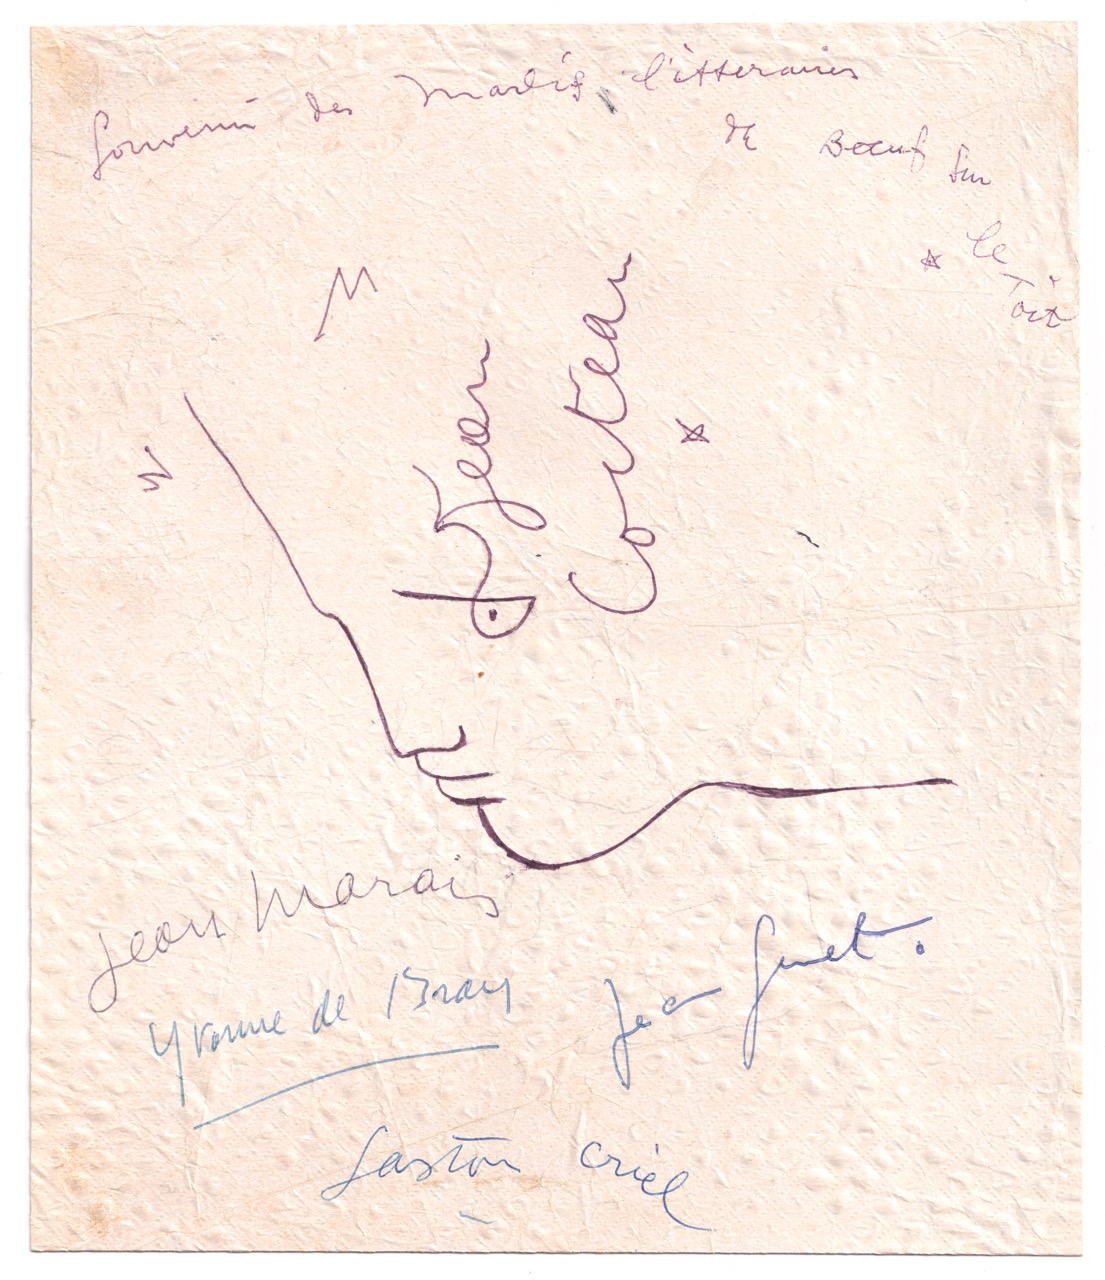 Souvenir des Mardis littéraires
de Boeuf sur
le
Toit
Jean
Cocteau
Jean Marais
Yvonne de Bray
Jean Genet.
Gaston Criel